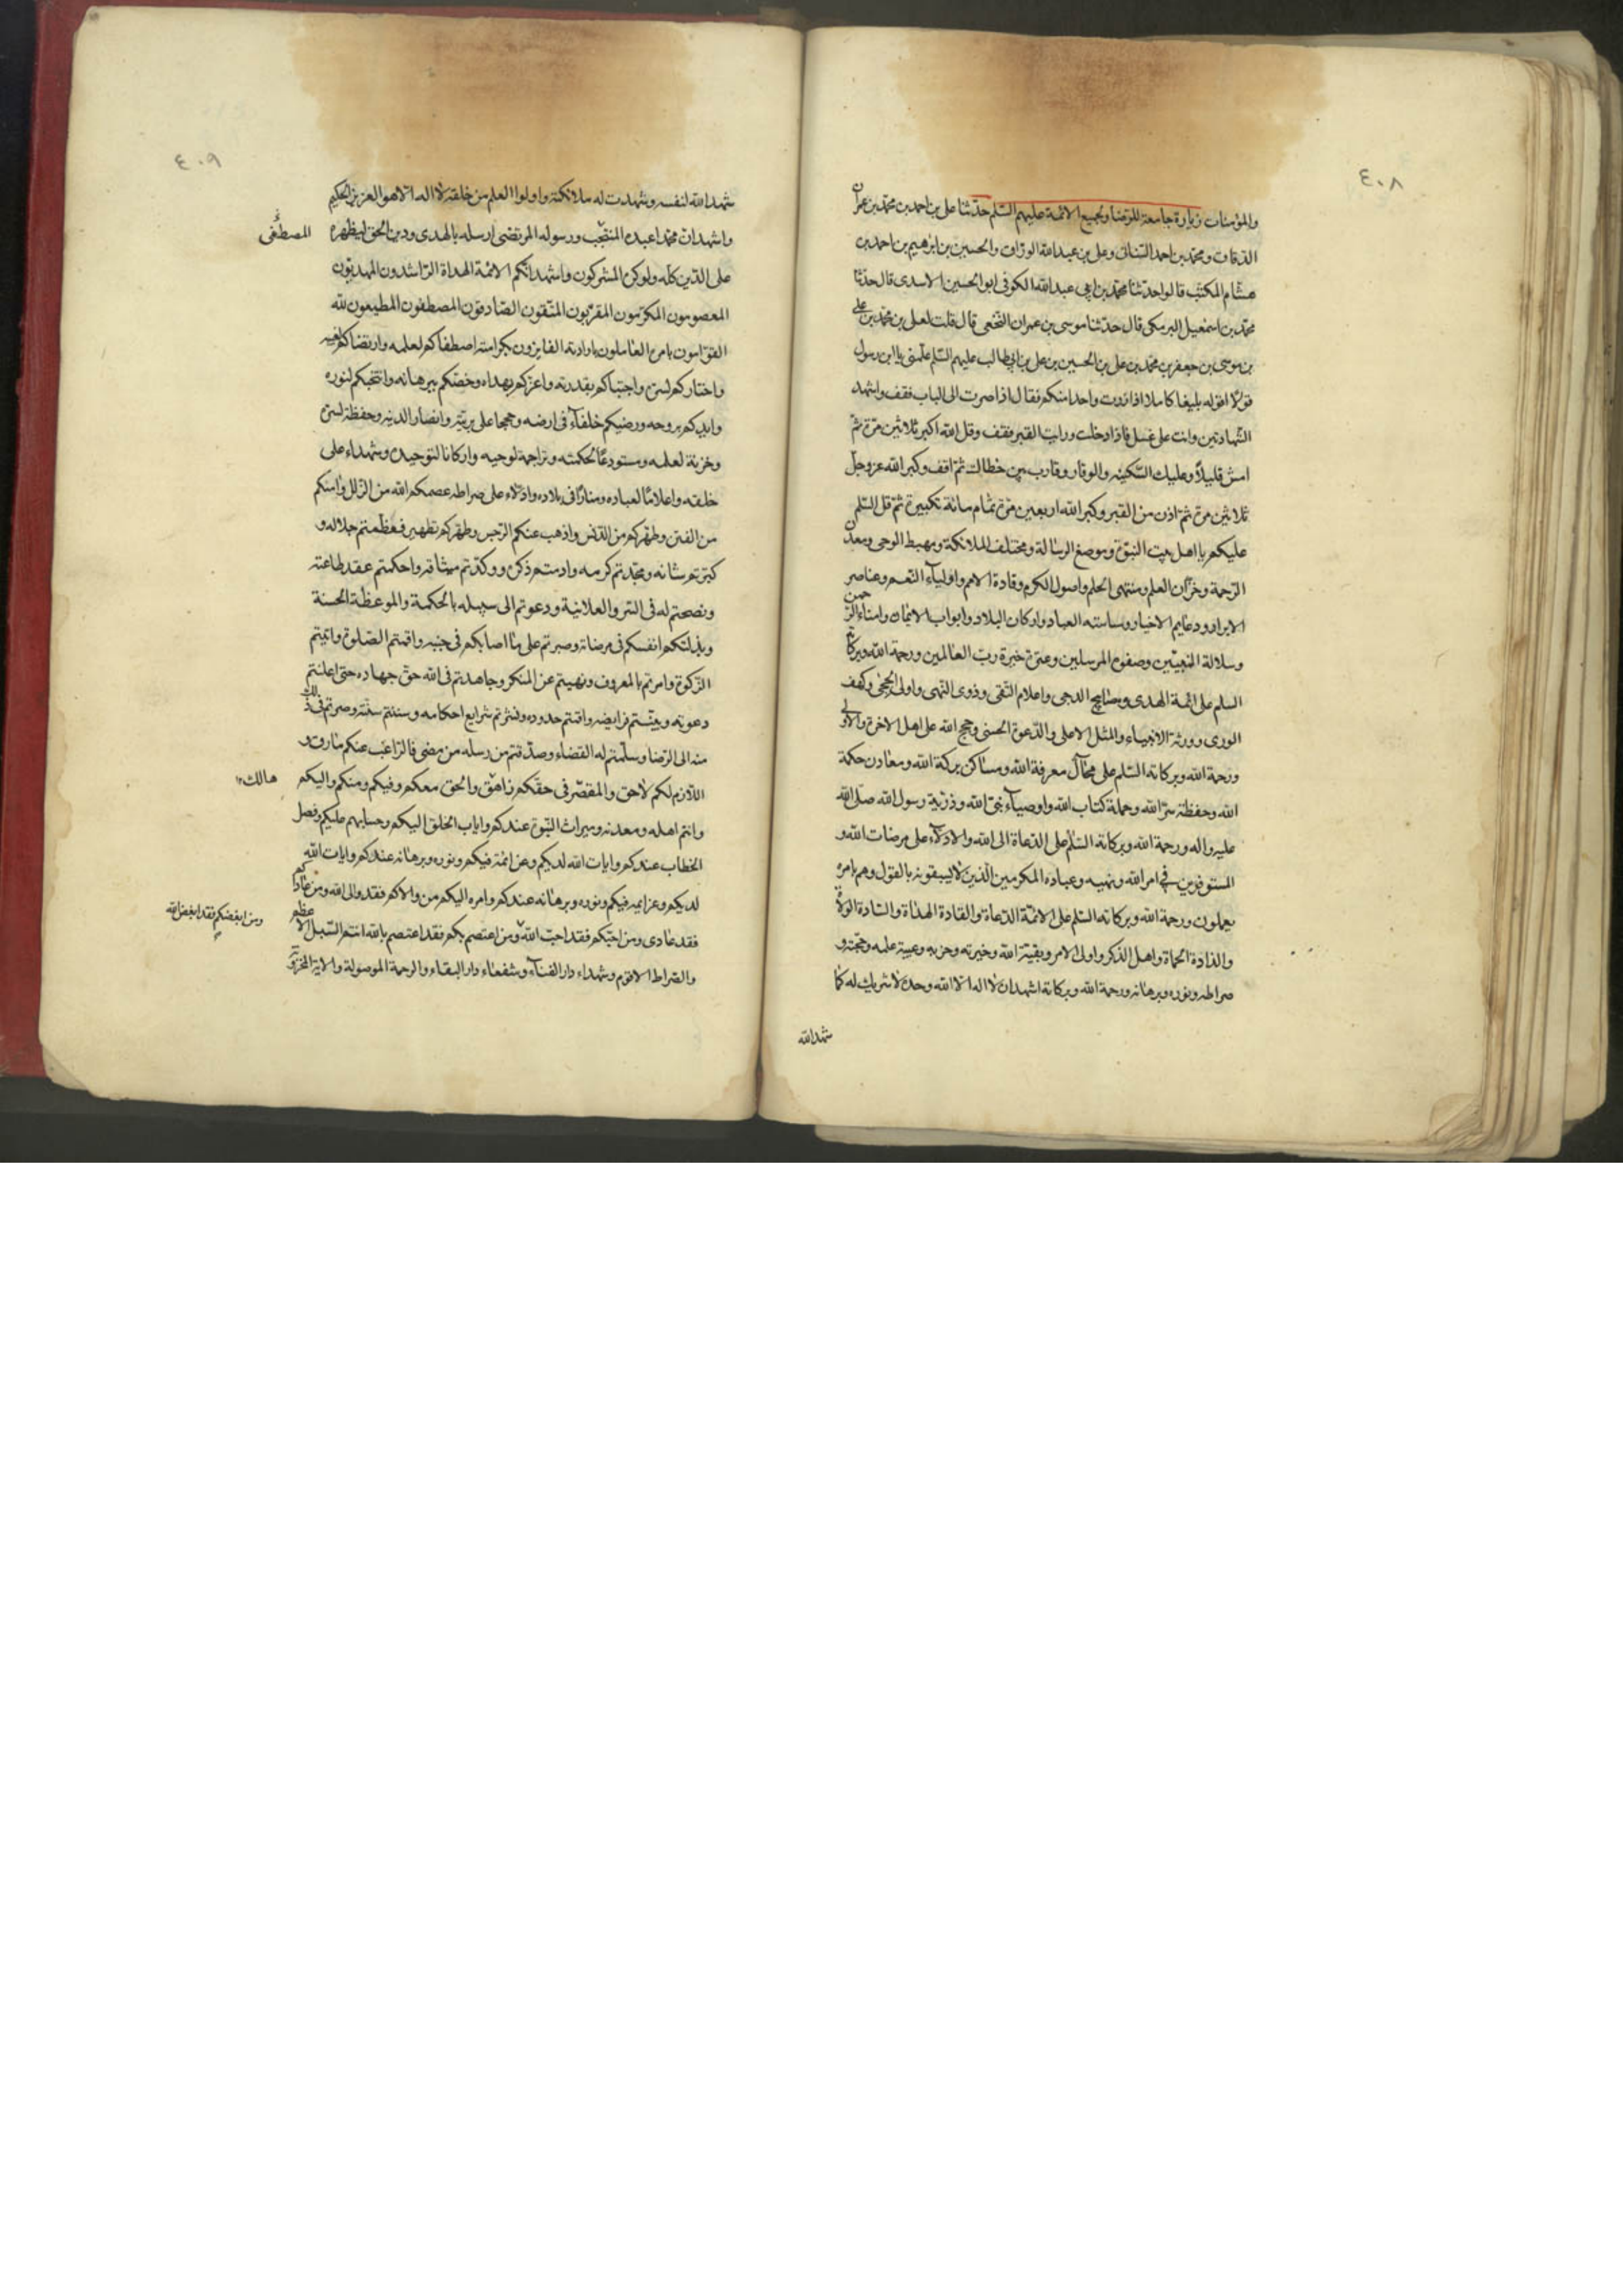 ٤٠٨
والمؤمنات زيارة جامعة للرضا ولجميع الائمة عليهم السّلم حدّثنا على بن احمد بن محمّد بن عمران
الدقاق ومحمّد بن احمد السّنانى وعلى بن عبدالله الوراق والحسين بن ابرهيم بن احمد بن
هشام المكتب قالوا حدّثنا محمّد بن ابى عبدالله الكوفى ابو الحسين الاسدى قال حدّثنا
محمّد بن اسمعيل البرمكى قال حدّثنا موسى بن عمران النخعى قال قلت لعلى بن محمّد بن على
بن موسى بن جعفر بن محمّد بن على بن الحسين بن على بن ابى طالب عليهم السّلم علّمنى يا ابن رسول
قولًا اقوله بليغا كاملا اذا زرت واحدا منكم فقال اذا صرت الى الباب فقف واشهد
الشّهادتين وانت على غسل فاذا دخلت ورايت القبر فقف وقل الله اكبر ثلاثين مرّة ثمّ
امش قليلاً وعليك السّكينه والوقار وقارب بين خطاك ثمّ اقف وكبر الله عزوجلّ
ثلاثين مرّة ثمّ اذن من القبر وكبر الله اربعين مرّة تمام مائة تكبيرة ثمّ قل السّلم
عليكم يا اهل بيت النبوّة وموضع الرسالة ومختلف الملائكة ومهبط الوحى ومعدن
الرّحمة وخزّان العلم ومنتهى الحلم واصول الكرم وقادة الامم واولياء النّعم وعناصر
الابرار ودعايم الاخيار وساسته العباد واركان البلاد وابواب الايمان وامناء الرّحمن
وسلالة النبيّين وصفوة المرسلين وعترة خيرة ربّ العالمين ورحمة الله وبركاته
السلم على ائمّة الهدى ومصابيح الدجى واعلام التّقى وذوى النّهى واولى الحجى وكهف
الورى وورثة الانبياء والمثل الاعلى والدّعوة الحسنى وحجج الله على اهل الاخرة والاولى
ورحمة الله وبركاته السّلم على محالّ معرفة الله ومساكن بركة الله ومعادن حكمة
الله وحفظة سرّ الله وحملة كتاب الله واوصياء نبىّ الله وذرّية رسول الله صلّى الله
عليه واله ورحمة الله وبركاته السّلم على الدّعاة الى الله والادلّاء على مرضات الله و
المستوفرين فى امر الله ونهيه وعباده المكرمين الّذين لا يسبقونه بالقول وهم بامره
يعملون ورحمة الله وبركاته السّلم على الائمّة الدّعاة والقادة الهداة والسّادة الولاة
والذادة الحماة واهل الذكر واولى الامر وبقيّة الله وخيرته وحزبه وعيبة علمه وحجّته و
صراطه ونوره وبرهانه ورحمة الله وبركاته اشهد ان لا اله الا الله وحده لا شريك له كما
شهد الله
٤٠٩
شهد الله لنفسه وشهدت له ملائكته واولوا العلم من خلقه لا اله الّا هو العزيز الحكيم
واشهد انّ محمّدا عبده المنتجب ورسوله المرتضى ارسله بالهدى ودين الحق ليظهره
المصطفى
على الدّين كلّه ولو كره المشركون واشهد انّكم الائمّة الهداة الرّاشدون المهديّون
المعصومون المكرّمون المقرّبون المتّقون الصّادقون المصطفون المطيعون لله
القوّامون بامره العاملون بارادته الفايزون بكرامته اصطفاكم لعلمه وارتضاكم لغيبه
واختاركم لسرّه واجتباكم بقدرته واعزّكم بهداه وخصّكم ببرهانه وانتجبكم لنوره
وايدكم بروحه ورضيكم خلفاء فى ارضه وحججا على بريّته وانصارا لدينه وحفظة لسرّه
وخزنة لعلمه ومستودعًا لحكمته وتراجمة لوحيه واركانا لتوحيده وشهداء على
خلقه واعلامًا لعباده ومنارًا فى بلاده وادلّاء على صراطه عصمكم الله من الزّلل وامنكم
من الفتن وطهّركم من الدّنس واذهب عنكم الرّجس وطهّركم تطهيرا فعظّمتم جلاله و
كبّرتم شانه ومجّدتم كرمه وادمتم ذكره ووكدّتم ميثاقه واحكمتم عقد طاعته
ونصحتم له فى السّر والعلانية ودعوتم الى سبيله بالحكمة والموعظة الحسنة
وبذلتكم انفسكم فى مرضاته وصبرتم على ما اصابكم فى جنبه واقمتم الصّلوة واتيتم
الزّكوة وامرتم بالمعروف ونهيتم عن المنكر وجاهدتم فى الله حقّ جهاده حتى اعلنتم
دعوته وبيّنتم فرايضه واقمتم حدوده ونشرتم شرايع احكامه وسننتم سنّته وصرتم فى ذلك
منه الى الرّضا وسلّمتم له القضاء وصدّقتم من رسله من مضى فالرّاغب عنكم مارق و
اللّازم لكم لاحق والمقصّر فى حقّكم زاهق والحق معكم وفيكم ومنكم واليكم
هالك
وانتم اهله ومعدنه وميراث النّبوّة عندكم واياب الخلق اليكم وحسابهم عليكم وفصل
الخطاب عندكم وايات الله لديكم وعزائمه فيكم ونوره وبرهانه عندكم وايات الله
لديكم وعزايمه فيكم ونوره وبرهانه عندكم وامره اليكم من والاكم فقد والى الله ومن عاداكم
فقد عادى ومن احبّكم فقد احبّ الله ومن اعتصم بكم فقد اعتصم بالله انتم السّبيل الاعظم
ومن ابغضكم فقد ابغض الله
والصّراط الاقوم وشهداء دار الفناء وشفعاء دار البقاء والرحمة الموصولة والاية المخزونة